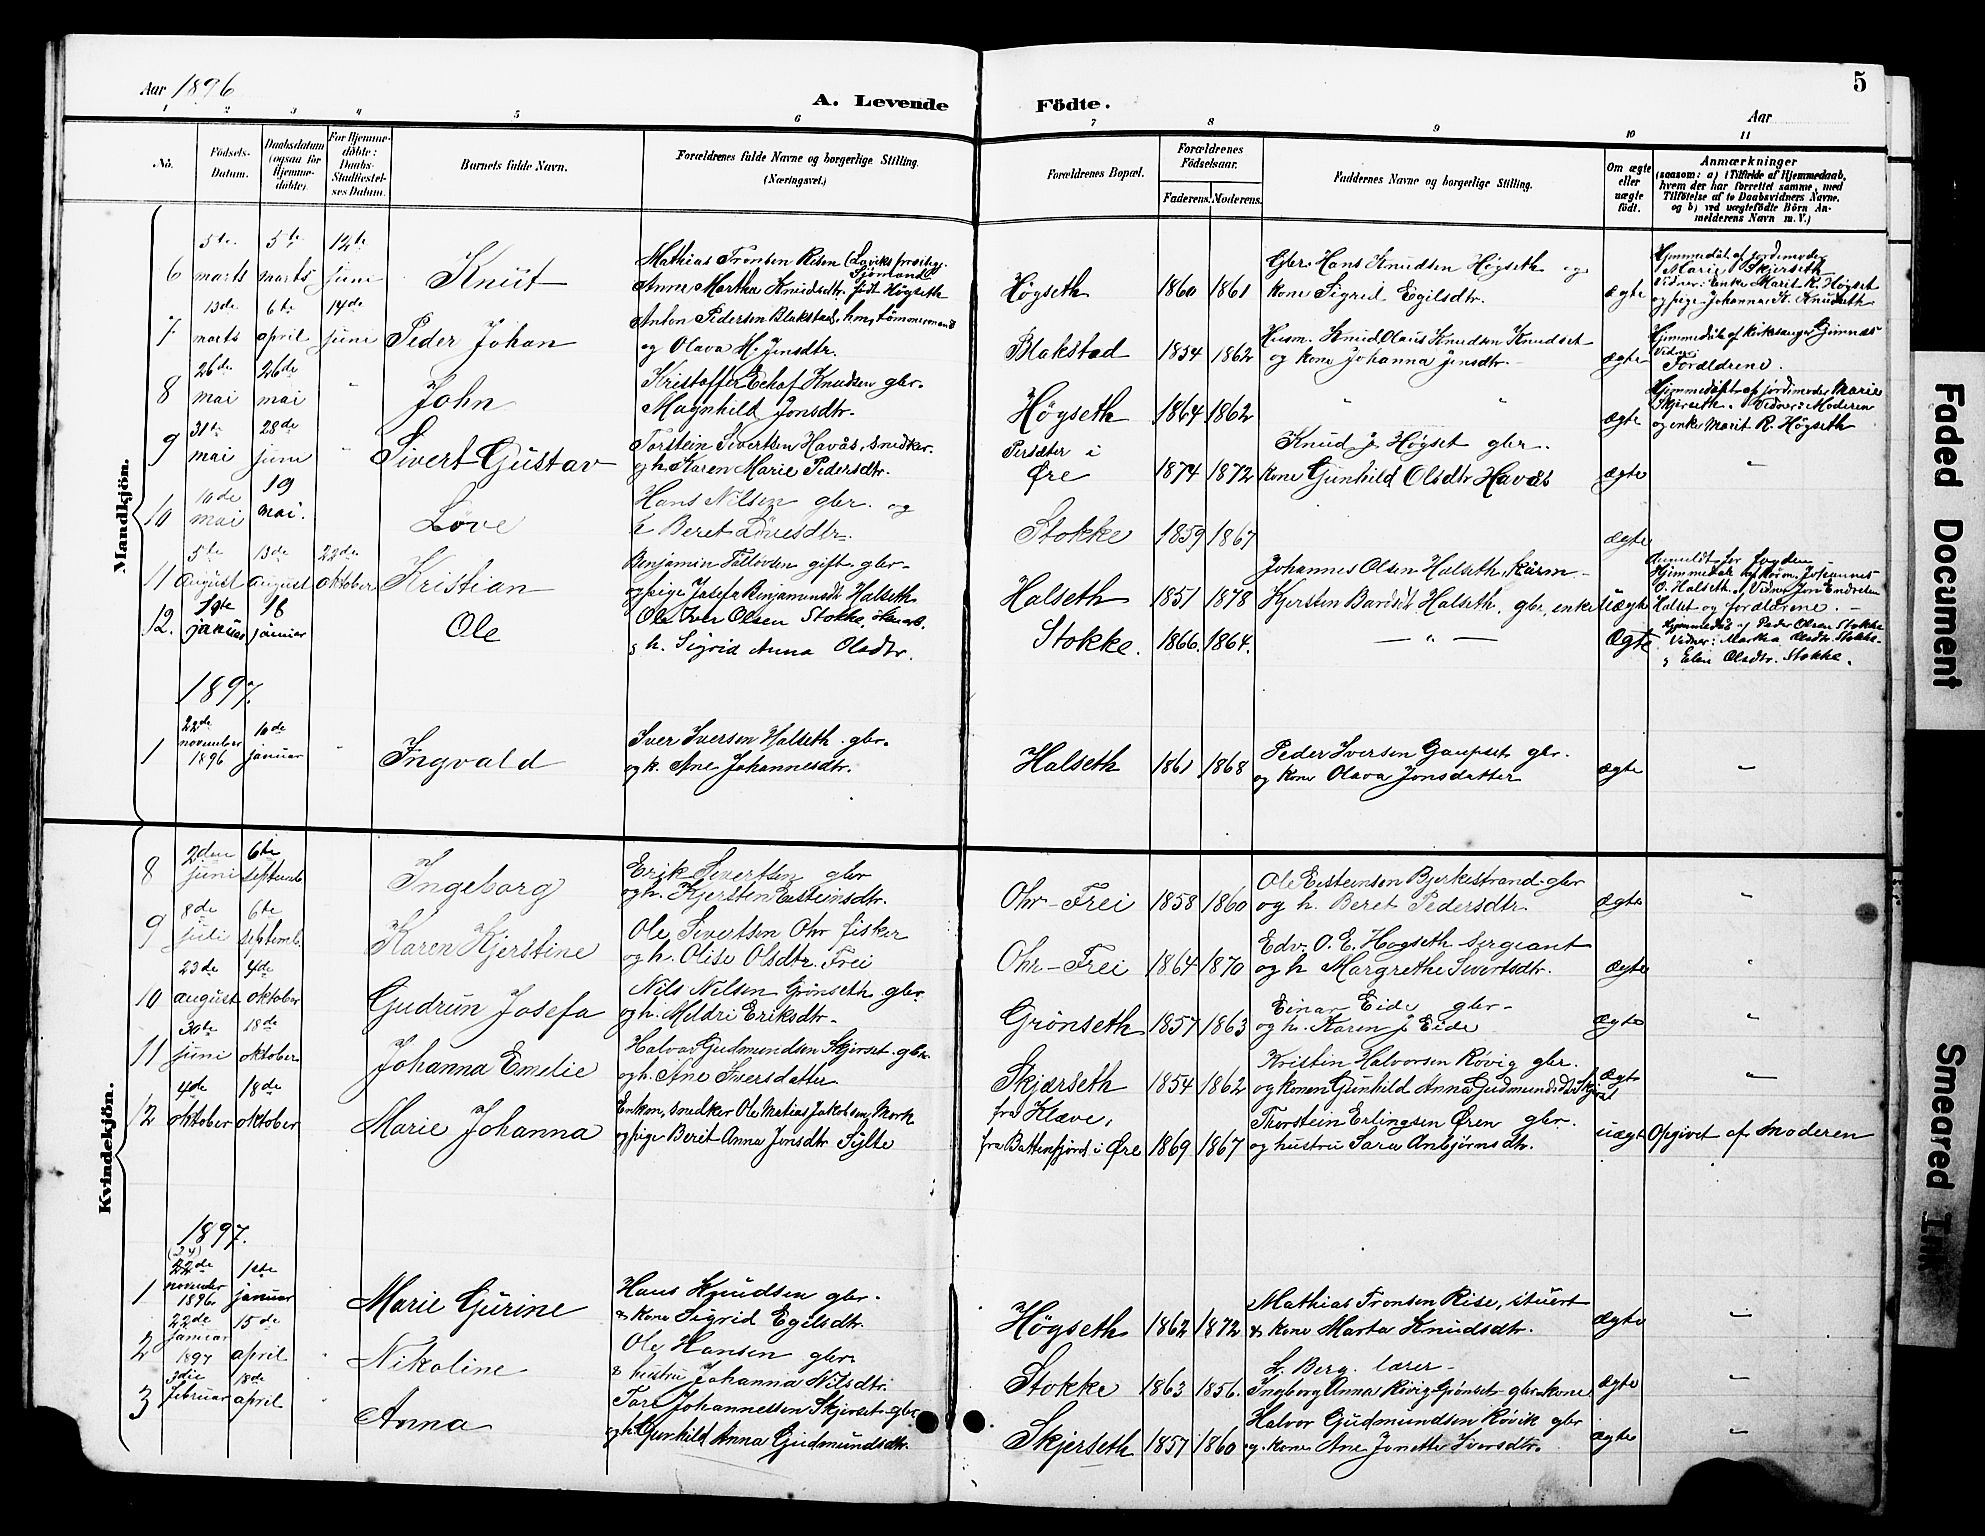 Aar 1896
A. Levende Födte.
5
Aar
1 2 3 4 5 6 7 8 9 10 11
No. Födsels-Datum. Daabsdatum (ogsaa för Hjemme-döbte). For Hjemme-döbte: Daabs-Stadfæstelses Datum. Barnets fulde Navn. Forældrenes fulde Navne og borgerlige Stilling. (Næringsvei.) Forældrenes Bopæl. Forældrenes Födselsaar. Faderens. Moderens. Faddernes Navne og borgerlige Stilling. Om ægte eller uægte födt. Anmærkninger (saasom: a) i Tilfælde af Hjemmedaab, hvem der har forrettet samme, med Tilföielse af to Daabsvidners Navne, og b) ved uægtefödte Börn Anmelderens Navn m. V.)
Mandkjön.
6 5te marts 5te marts 12te juni Knut
Mathias Tronsen Risen
Sjömand
Anne Martha Knudsdtr. född Högseth
Högseth 1860 1861
Gbr. Hans Knudsen Högseth og
kone Sigrid Egilsdtr.
ægte
Hjemmedöbt af jordmoder
Marie Skjerseth
Vidner: Enke Marit R. Högset
og pige Johanna K.
7 13de marts 6te april 14de juni Peder Johan
Anton Pedersen Blakstad, hm, tömmermand
og Olava M. Jensdtr.
Blakstad 1854 1862
Husm. Knud Olaus Knudsen Knudset
og kone Johanna Jensdtr.
ægte
Hjemmedöbt af Kirkesanger Gimnæs
Vidner
Forældrene.
8 26de mai 26de mai " John
Kristoffer Knudsen gbr.
Magnhild Jonsdtr.
Högseth 1864 1862
" "
ægte
Hjemmedöbt af jordmoder Marie
Skjerseth. Vidner: Moderen
og enke Marit R. Högseth
9 31te mai 28de juni " Sivert Gustav
Torstein Sivertsen Havås, snedker
og h. Karen Marie Pedersdtr.
Persæter i
Øre 1874 1872
Knud J. Högset gbr.
kone Gunhild Olsdtr Havås
ægte "
10 10de mai 19 mai. Löve
Hans Nilsen gbr. og
h Beret Lövesdtr.
Stokke 1859 1867
ægte
11 5te august 13de august 22de oktober Kristian
Benjamin gift gbr.
og pige Josefa Benjaminsdtr Halseth
Halseth 1851 1878
Johannes Olsen Halseth, kårm.
Kjersten Bardsdt Halseth, gbr. enke
uægte
Anmeldt for Fogden
Hjemmedöb Johannes
O. Halseth. Vidner Jon Endresen
Halset og forældrene.
12. 19te januar 18 januar Ole
Ole Iver Olsen Stokke,
og h. Sigrid Anna Olsdtr.
Stokke. 1866. 1864.
— " —
Ægte.
Hjemmedöb af Peder Olsen Stokke
Vidner: Martha Olsdtr. Stokke
og Elen Olsdtr. Stokke.
1897.
1 22de november 1896 10de januar " Ingvald
Iver Iversen Halseth gbr.
og k. Ane Johannesdtr.
Halseth 1861 1868
Peder Iversen Gaupset gbr.
og kone Olava Jonsdatter
ægte "
Kvindekjön.
8 2den juni 6te septemb Ingeborg
Erik Sivertsen gbr
og h. Kjersten Eisteinsdtr.
Ohr-Frei 1858 1860
Ole Eisteinsen Bjerkestrand gbr
og h. Beret Pedersdtr.
ægte "
9 8de juli 6te septemb. Karen Kjerstine
Ole Sivertsen Ohr fisker
og h. Olise Olsdtr. Frei
Ohr-Frei 1864 1870
Edv. O. E. Hogseth sergeant
og h Margrethe Sivertsdtr.
ægte "
10 23de august 4de oktober Gudrun Josefa
Nils Nilsen Grönseth gbr.
og h. Meldri Eriksdtr.
Grönseth 1857 1863
Einar Eide gbr.
og h. Karen J. Eide
ægte "
11 30te juni 18de oktober Johanna Emelie
Halvor Gudmundsen Skjerset gbr.
og h. Ane Iversdatter
Skjærseth 1854 1862
Kristin Halvorsen Rövig gbr.
og konen Gunhild Anna Gudmundsdt Skjerset
ægt "
12 4de oktober 18de oktober Marie Johanna
Enkem, snedker Ole Matias Jakobsen Mork
og pige Berit Anna Jonsdtr Sylte
fra Klæve,
fra Battenfjord i Øre 1869 1867
Thorstein Erlingsen Ören gbr.
og hustru Sara Anbjörnsdtr.
uægt Opgivet af Moderen
1897.
1 (24) 22de november 1896 1ste januar Marie Gurine
Hans Knudsen gbr.
& kone Sigrid Egilsdtr.
Högseth 1862 1872
Mathias Tronsen Rise, stuert
& kone Marta Knudsdtr.
ægte "
2 22de januar 1897 15de april " Nikoline
Ole Hansen gbr.
& hustru Johanna Nilsdtr.
Stokke 1863 1856.
L. Berg. lærer
Ingeborg Anna Rövig Grönset gbr.kone
ægte "
3 3die februar 18de april " Anna
Tore Johannessen Skjerset gbr
og h Gunhild Anna Gudmundsdtr.
Skjerseth 1857 1860
Halvor Gudmundsen Rövik gbr
g. kone Ane Jonette Iversdtr.
ægte "
Faded Document
Smeared Ink